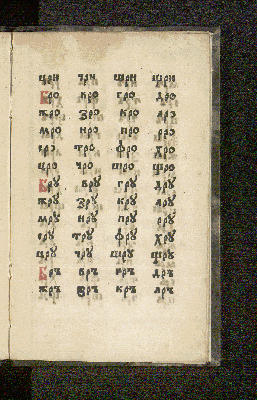 цри чри шри щри
Бро вро гро дро
жро зро кро лро
мро нро про рро
сро тро фро хро
цро чро шро щро
Брꙋ врꙋ грꙋ дрꙋ
жрꙋ зрꙋ крꙋ лрꙋ
мрꙋ нрꙋ прꙋ ррꙋ
срꙋ трꙋ фрꙋ хрꙋ
црꙋ чрꙋ шрꙋ щрꙋ
Бръ връ гръ дръ
жръ ѕръ кръ лръ